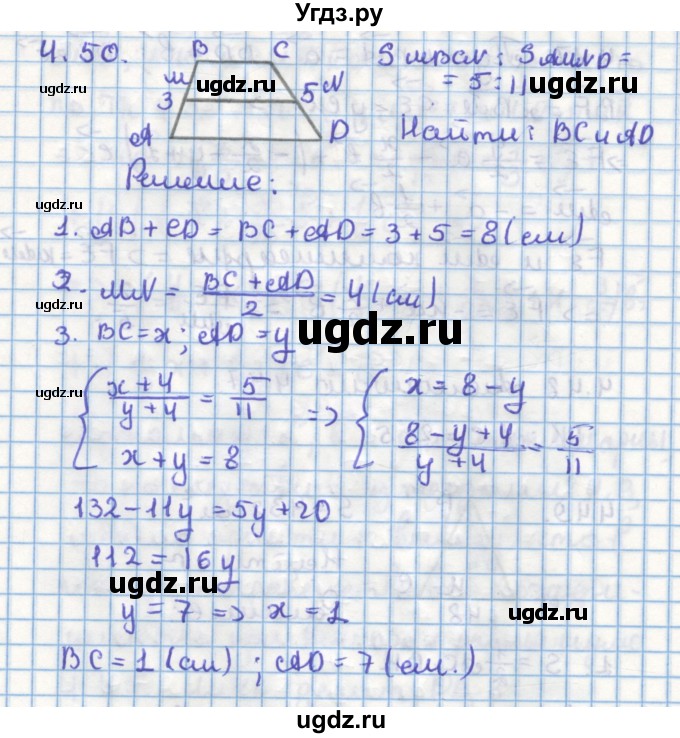 Угдз.ру
4.50. B C S MBCN : S AMND =
ugdz.ru M ugdz.ru N = 5 : 11
3 5 ugdz.ru
A D Найти: BC и AD
Решение:
ugdz.ru ugdz.ru
1. AB + CD = BC + AD = 3 + 5 = 8 (см)
2. MN = BC + AD / 2 = 4 (см)
3. BC = x ; AD = y ugdz.ru
ugdz.ru
{ x + 4 / y + 4 = 5 / 11 => { x = 8 - y
x + y = 8 8 - y + 4 / y + 4 = 5 / 11
132 - 11y = 5y + 20
112 = 16y
ugdz.ru ugdz.ru
y = 7 => x = 1
BC = 1 (см) ; AD = 7 (см.)
ugdz.ru
ugdz.ru